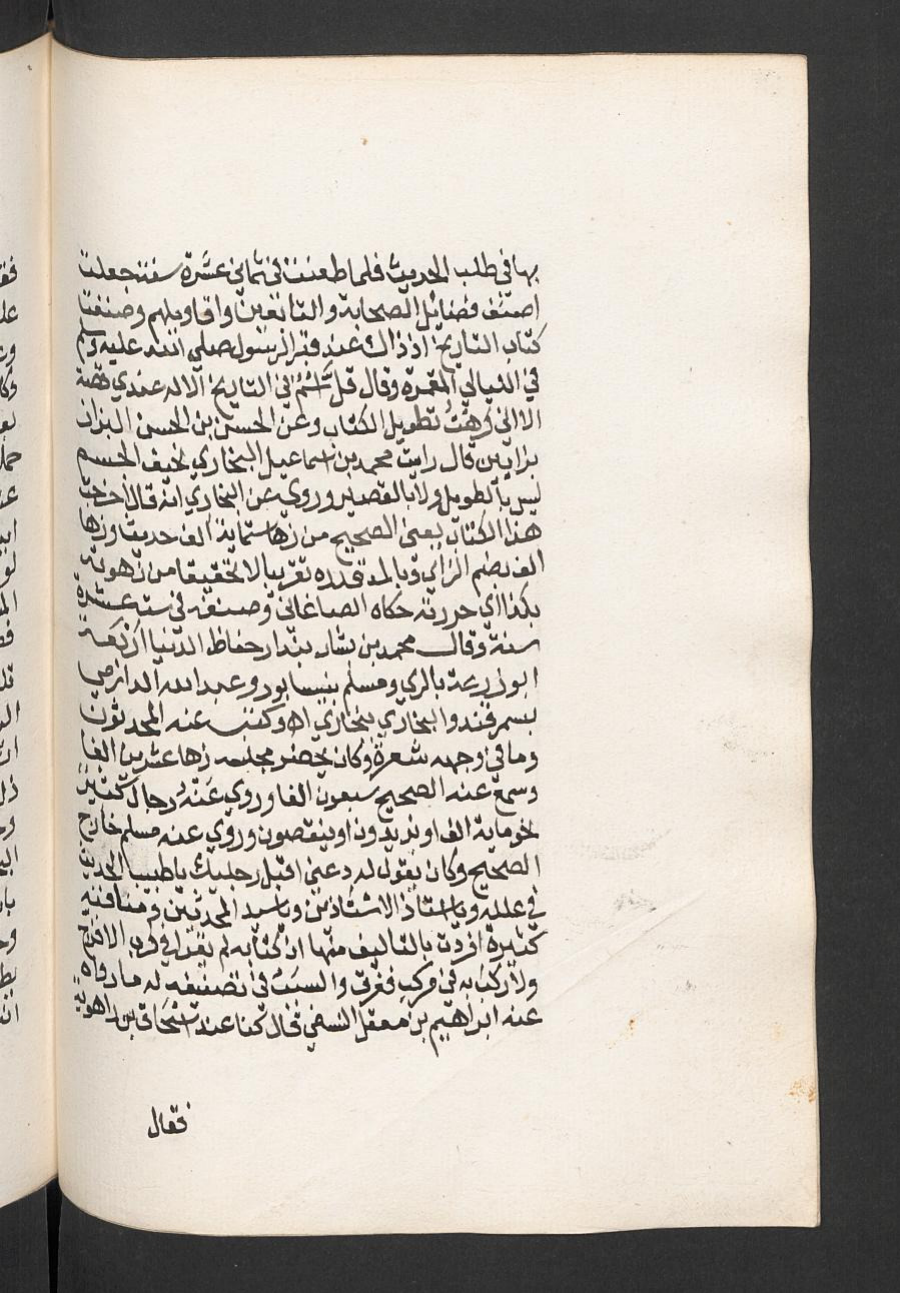 بها في طلب الحديث فلما طعنت في ثماني عشرة سنة جعلت
اصنف فضائل الصحابة والتابعين واقاويلهم وصنفت
كتاب التاريخ اذ ذاك عند قبر الرسول صلي الله عليه وسلم
في الليالي المقمرة وقال قل اسم في التاريخ الا له عندي قصة
الا اني كرهت تطويل الكتاب وعن الحسن بن الحسن البزاز
قال رايت محمد بن اسماعيل البخاري نحيف الجسم
ليس بالطويل ولا بالقصير وروي عن البخاري انه قال اخرجت
هذا الكتاب يعني الصحيح من زها ستماية الف حديث وزها
الف بضم الزاي وبالمد قدره تقريبا لا تحقيقا من زهوته
بكذا اي حررته حكاه الصاغاني وصنفه في ستة عشرة
سنة وقال محمد بن بشار بندار حفاظ الدنيا اربعة
ابو زرعة بالري ومسلم بنيسابور وعبد الله الدارمي
بسمرقند والبخاري ببخاري اه وكتب عنه المحدثون
وما في وجهه شعرة وكان يحضر مجلسه زها عشرين الفا
وسمع عنه الصحيح سبعون الفا وروي عنه رجال كثير
نحو ماية الف او يزيدون او ينقصون وروي عنه مسلم خارج
الصحيح وكان يقول له دعني اقبل رجليك يا طبيب الحديث
في علله ويا استاذ الاستاذين ويا سيد المحدثين ومناقبه
كثيرة افردت بالتاليف منها ان كتابه لم يقرا في كرب الا فرج
ولا ركب به في مركب فغرق والسبب في تصنيفه له ما رواه
عنه ابراهيم بن معقل النسفي قال كنا عند اسحاق بن راهويه
فقال